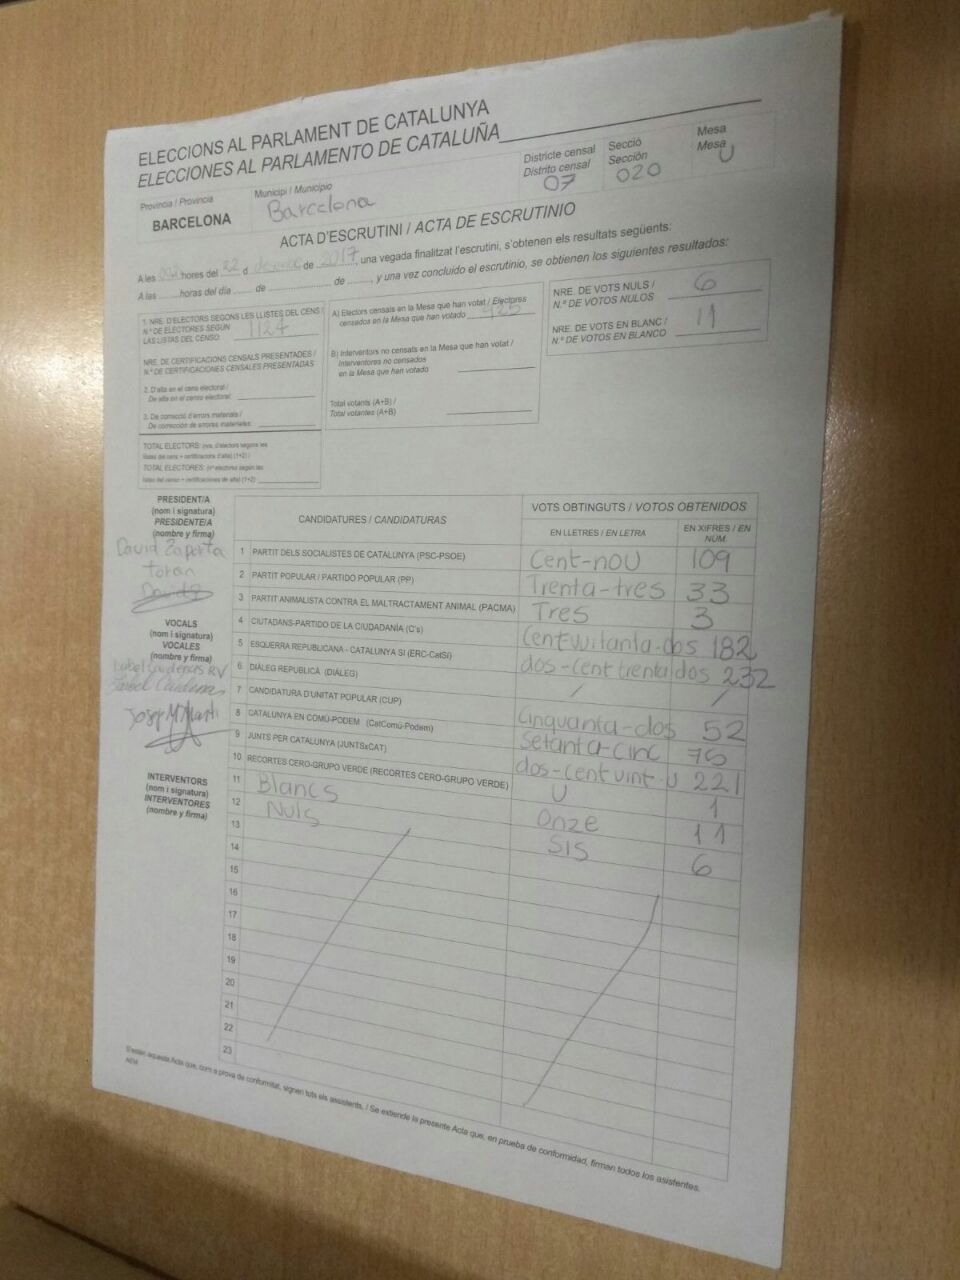 ELECCIONS AL PARLAMENT DE CATALUNYA
ELECCIONES AL PARLAMENTO DE CATALUÑA
Província / Provincia
BARCELONA
Municipi / Municipio
Barcelona
Districte censal
Distrito censal
07
Secció
Sección
020
Mesa
Mesa
U
ACTA D'ESCRUTINI / ACTA DE ESCRUTINIO
A les hores del 22 d de 2017, una vegada finalitzat l'escrutini, s'obtenen els resultats següents:
A las horas del día de de , y una vez concluido el escrutinio, se obtienen los siguientes resultados:
1. NRE. D'ELECTORS SEGONS LES LLISTES DEL CENS /
N.º DE ELECTORES SEGÚN
LAS LISTAS DEL CENSO 1124
NRE. DE CERTIFICACIONS CENSALS PRESENTADES /
N.º DE CERTIFICACIONES CENSALES PRESENTADAS
2. D'alta en el cens electoral /
De alta en el censo electoral:
3. De correcció d'errors materials /
De corrección de errores materiales:
TOTAL ELECTORS: (nre. d'electors segons les
llistes del cens + certificacions d'alta) (1+2) /
TOTAL ELECTORES: (nº electores según las
listas del censo + certificaciones de alta) (1+2):
A) Electors censals en la Mesa que han votat / Electores
censados en la Mesa que han votado 925
B) Interventors no censats en la Mesa que han votat /
Interventores no censados
en la Mesa que han votado
Total votants (A+B) /
Total votantes (A+B)
NRE. DE VOTS NULS /
N.º DE VOTOS NULOS 6
NRE. DE VOTS EN BLANC /
N.º DE VOTOS EN BLANCO 11
PRESIDENT/A
(nom i signatura)
PRESIDENTE/A
(nombre y firma)
David Zaporta
Toran
VOCALS
(nom i signatura)
VOCALES
(nombre y firma)
Isabel Cárdenas RV
Isabel Cárdenas
Josep M Martí
INTERVENTORS
(nom i signatura)
INTERVENTORES
(nombre y firma)
CANDIDATURES / CANDIDATURAS
VOTS OBTINGUTS / VOTOS OBTENIDOS
EN LLETRES / EN LETRA
EN XIFRES / EN NÚM.
1 PARTIT DELS SOCIALISTES DE CATALUNYA (PSC-PSOE) Cent-nou 109
2 PARTIT POPULAR / PARTIDO POPULAR (PP) Trenta-tres 33
3 PARTIT ANIMALISTA CONTRA EL MALTRACTAMENT ANIMAL (PACMA) Tres 3
4 CIUTADANS-PARTIDO DE LA CIUDADANÍA (C's) Cent vuitanta-dos 182
5 ESQUERRA REPUBLICANA - CATALUNYA SÍ (ERC-CatSí) dos-cent trenta dos 232
6 DIÀLEG REPUBLICÀ (DIÀLEG) / /
7 CANDIDATURA D'UNITAT POPULAR (CUP) Cinquanta-dos 52
8 CATALUNYA EN COMÚ-PODEM (CatComú-Podem) Setanta-cinc 75
9 JUNTS PER CATALUNYA (JUNTSxCAT) dos-cent vint-u 221
10 RECORTES CERO-GRUPO VERDE (RECORTES CERO-GRUPO VERDE) U 1
11 Blancs Onze 11
12 Nuls Sis 6
13
14
15
16
17
18
19
20
21
22
23
S'estén aquesta Acta que, com a prova de conformitat, signen tots els assistents. / Se extiende la presente Acta que, en prueba de conformidad, firman todos los asistentes.